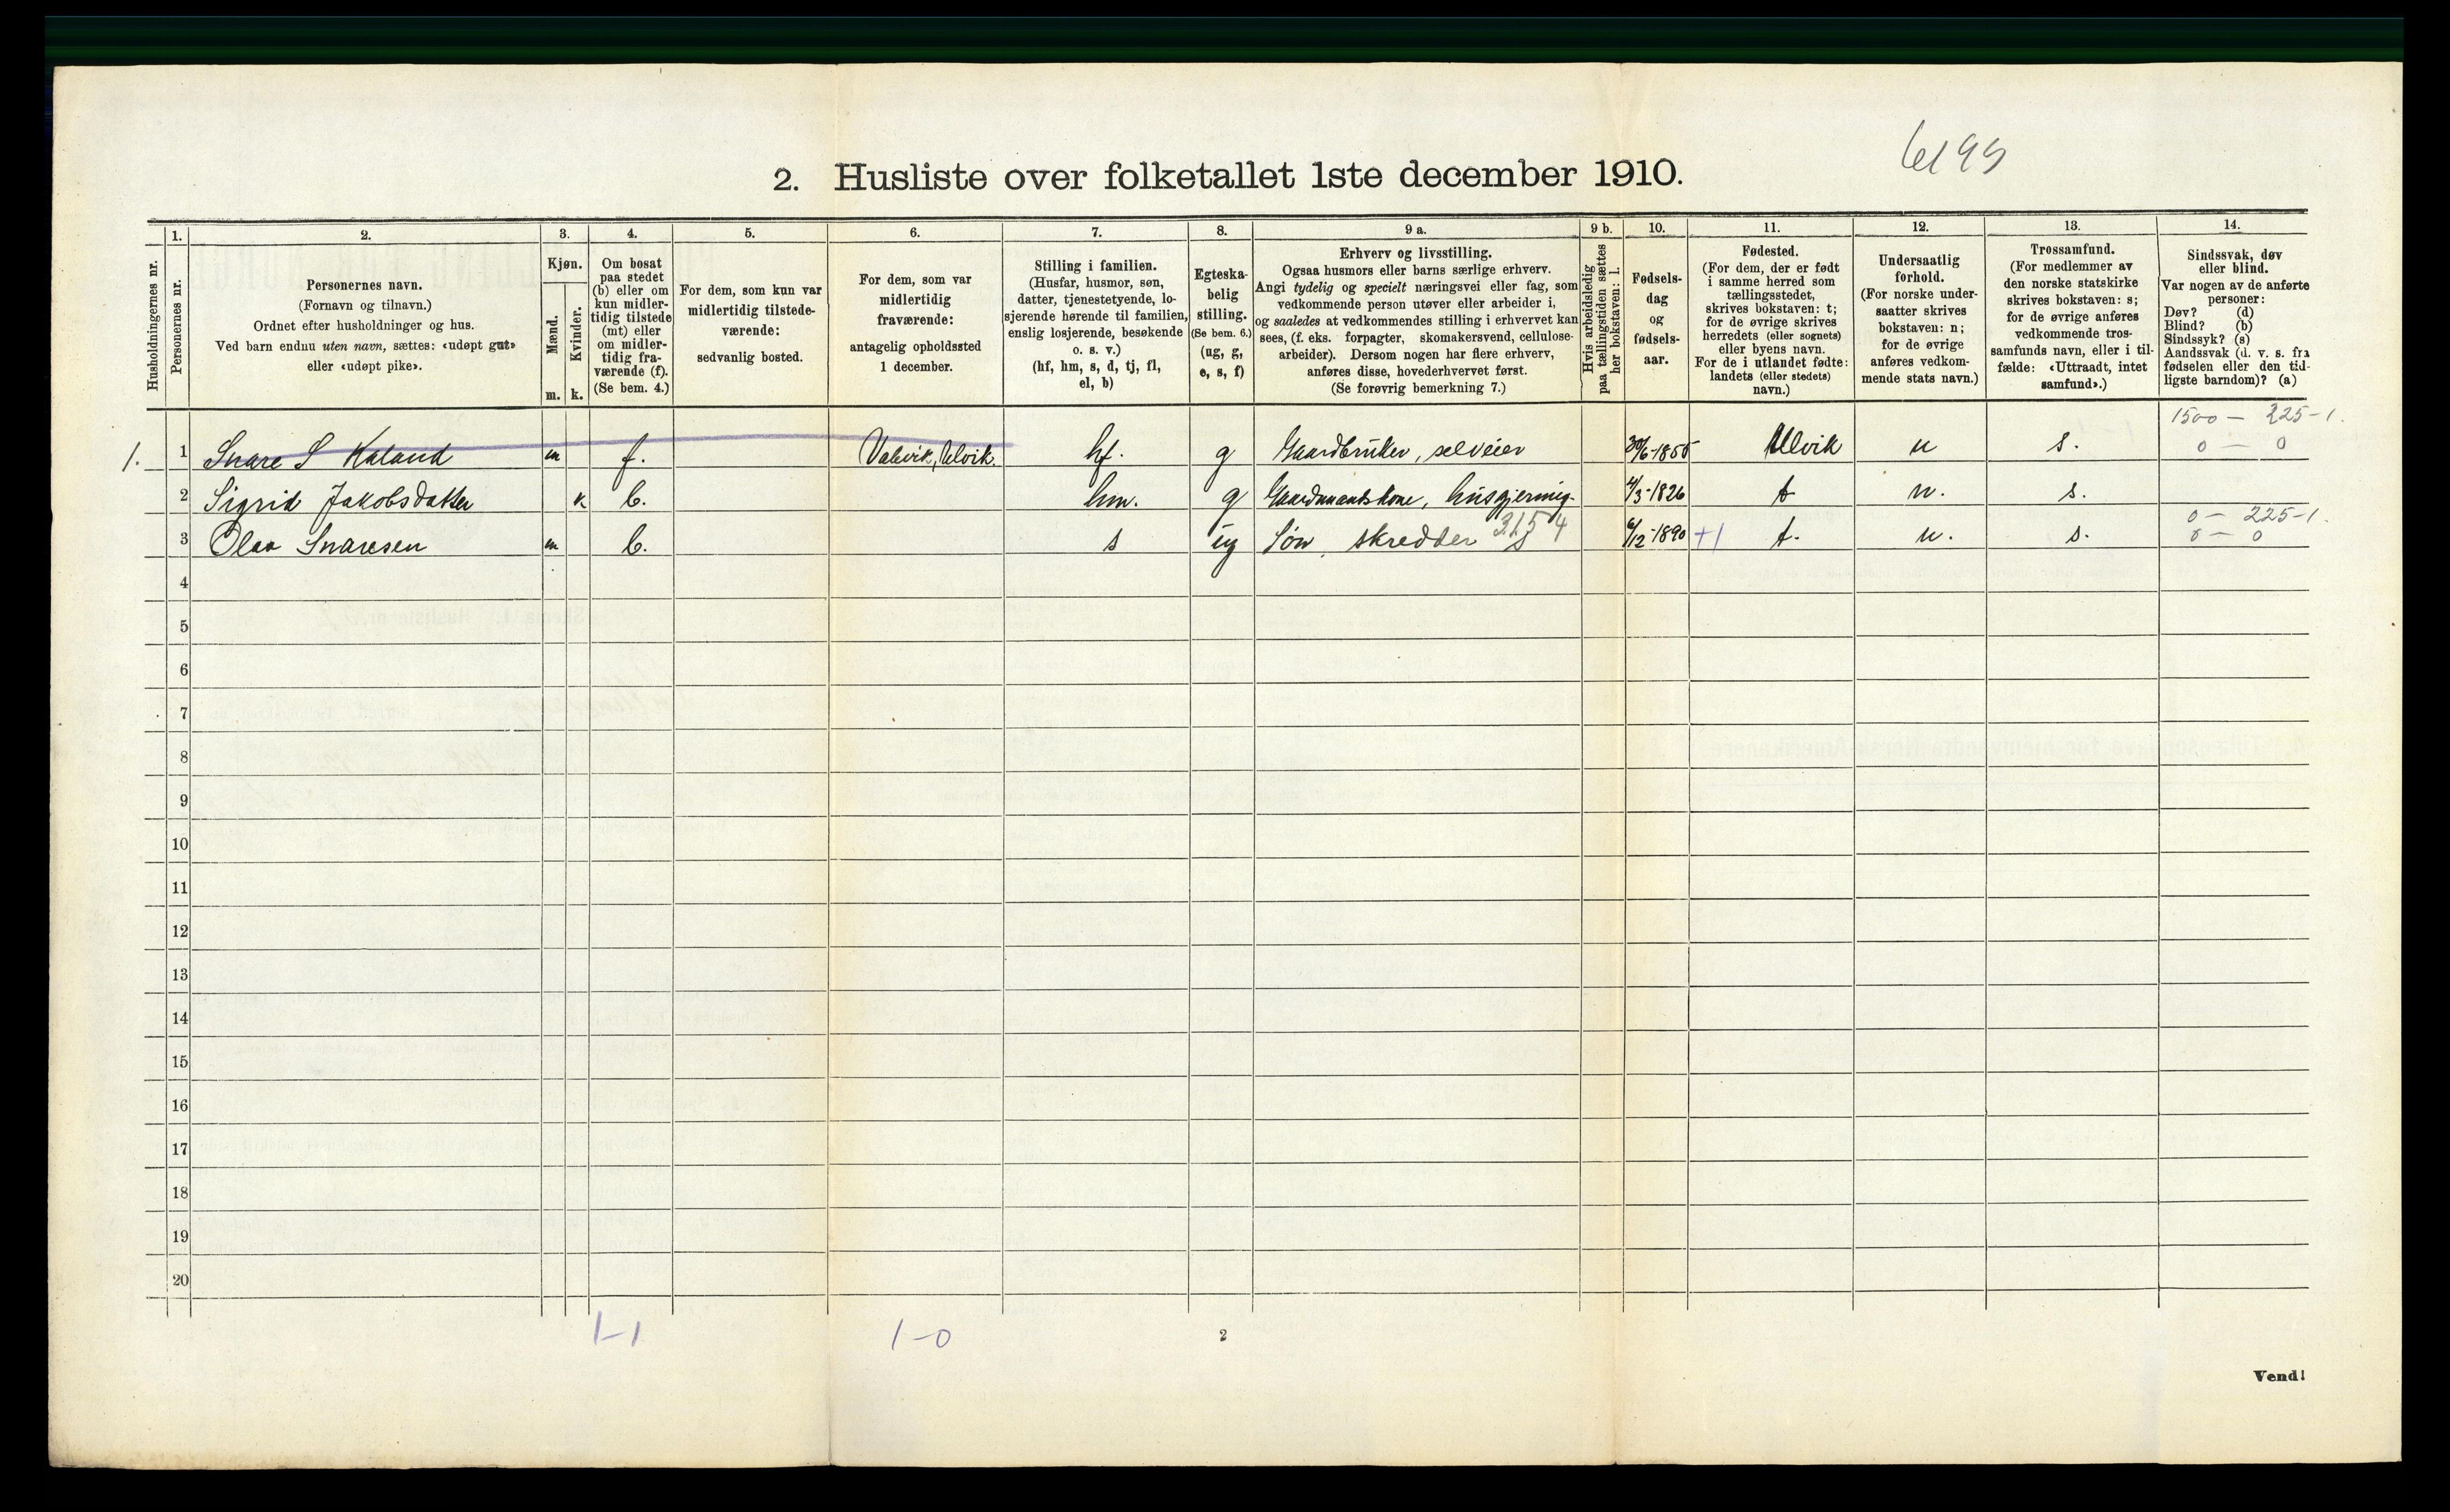 6199
2. Husliste over folketallet 1ste december 1910.
Husholdningernes nr.
1.
Personernes nr.
2.
Personernes navn.
(Fornavn og tilnavn.)
Ordnet efter husholdninger og hus.
Ved barn endnu uten navn, sættes: «udøpt gut»
eller «udøpt pike».
3.
Kjøn.
Mænd.
Kvinder.
m. k.
4.
Om bosat
paa stedet
(b) eller om
kun midler-
tidig tilstede
(mt) eller
om midler-
tidig fra-
værende (f).
(Se bem. 4.)
5.
For dem, som kun var
midlertidig tilstede-
værende:
sedvanlig bosted.
6.
For dem, som var
midlertidig
fraværende:
antagelig opholdssted
1 december.
7.
Stilling i familien.
(Husfar, husmor, søn,
datter, tjenestetyende, lo-
sjerende hørende til familien,
enslig losjerende, besøkende
o. s. v.)
(hf, hm, s, d, tj, fl,
el, b)
8.
Egteska-
belig
stilling.
(Se bem. 6.)
(ug, g,
e, s, f)
9 a.
Erhverv og livsstilling.
Ogsaa husmors eller barns særlige erhverv.
Angi tydelig og specielt næringsvei eller fag, som
vedkommende person utøver eller arbeider i,
og saaledes at vedkommendes stilling i erhvervet kan
sees, (f. eks. forpagter, skomakersvend, cellulose-
arbeider). Dersom nogen har flere erhverv,
anføres disse, hovederhvervet først.
(Se forøvrig bemerkning 7.)
9 b.
Hvis arbeidsledig
paa tællingstiden sættes
her bokstaven: l.
10.
Fødsels-
dag
og
fødsels-
aar.
11.
Fødested.
(For dem, der er født
i samme herred som
tællingsstedet,
skrives bokstaven: t;
for de øvrige skrives
herredets (eller sognets)
eller byens navn.
For de i utlandet fødte:
landets (eller stedets)
navn.)
12.
Undersaatlig
forhold.
(For norske under-
saatter skrives
bokstaven: n;
for de øvrige
anføres vedkom-
mende stats navn.)
13.
Trossamfund.
(For medlemmer av
den norske statskirke
skrives bokstaven: s;
for de øvrige anføres
vedkommende tros-
samfunds navn, eller i til-
fælde: «Uttraadt, intet
samfund».)
14.
Sindssvak, døv
eller blind.
Var nogen av de anførte
personer:
Døv? (d)
Blind? (b)
Sindssyk? (s)
Aandssvak (d. v. s. fra
fødselen eller den tid-
ligste barndom)? (a)
1500 — 225-1.
1. 1 Snare S Kaland m f. Valvik, Ulvik. hf. g Gaardbruker, selveier 30/6-1855 Ulvik n s. 0 — 0
2 Sigrid Jakobsdatter k b. hm. g Gaardmandskone, husgjerning. 4/3-1826 t n. s.
0 — 225-1.
3 Olav Snaresen m b. s ug Søn, skredder 315 4 6/12-1890 +1 t. n. s. 0 — 0
4
5
6
7
8
9
10
11
12
13
14
15
16
17
18
19
20
1-1 1-0 2
Vend!